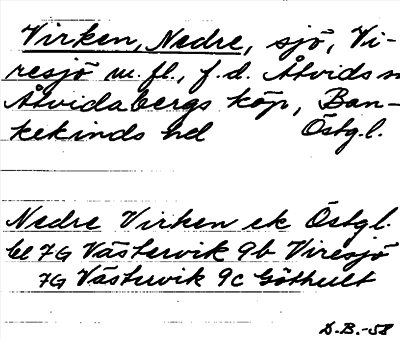 Virken, Nedre, sjö, Vi-
resjö m. fl., f. d. Åtvids sn
Åtvidabergs köp, Ban-
kekinds hd Östg.l.
Nedre Virken ek Östgl.
bl 7G Västervik 9b Viresjö
7G Västervik 9c Göthult
D.B.-58